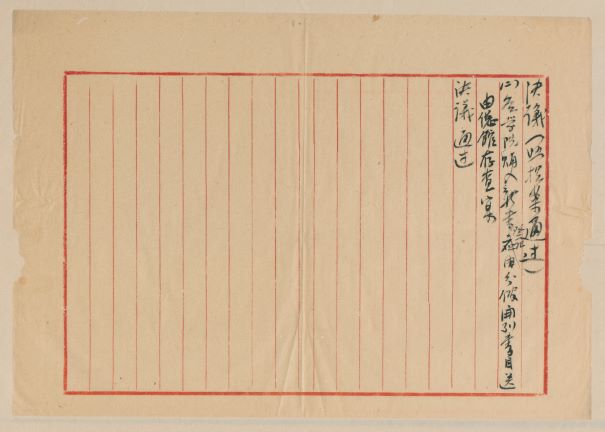 決議(照提案通过)
(二)各学院購入新書應由分館開列書目送
由總館存查案
決議通过